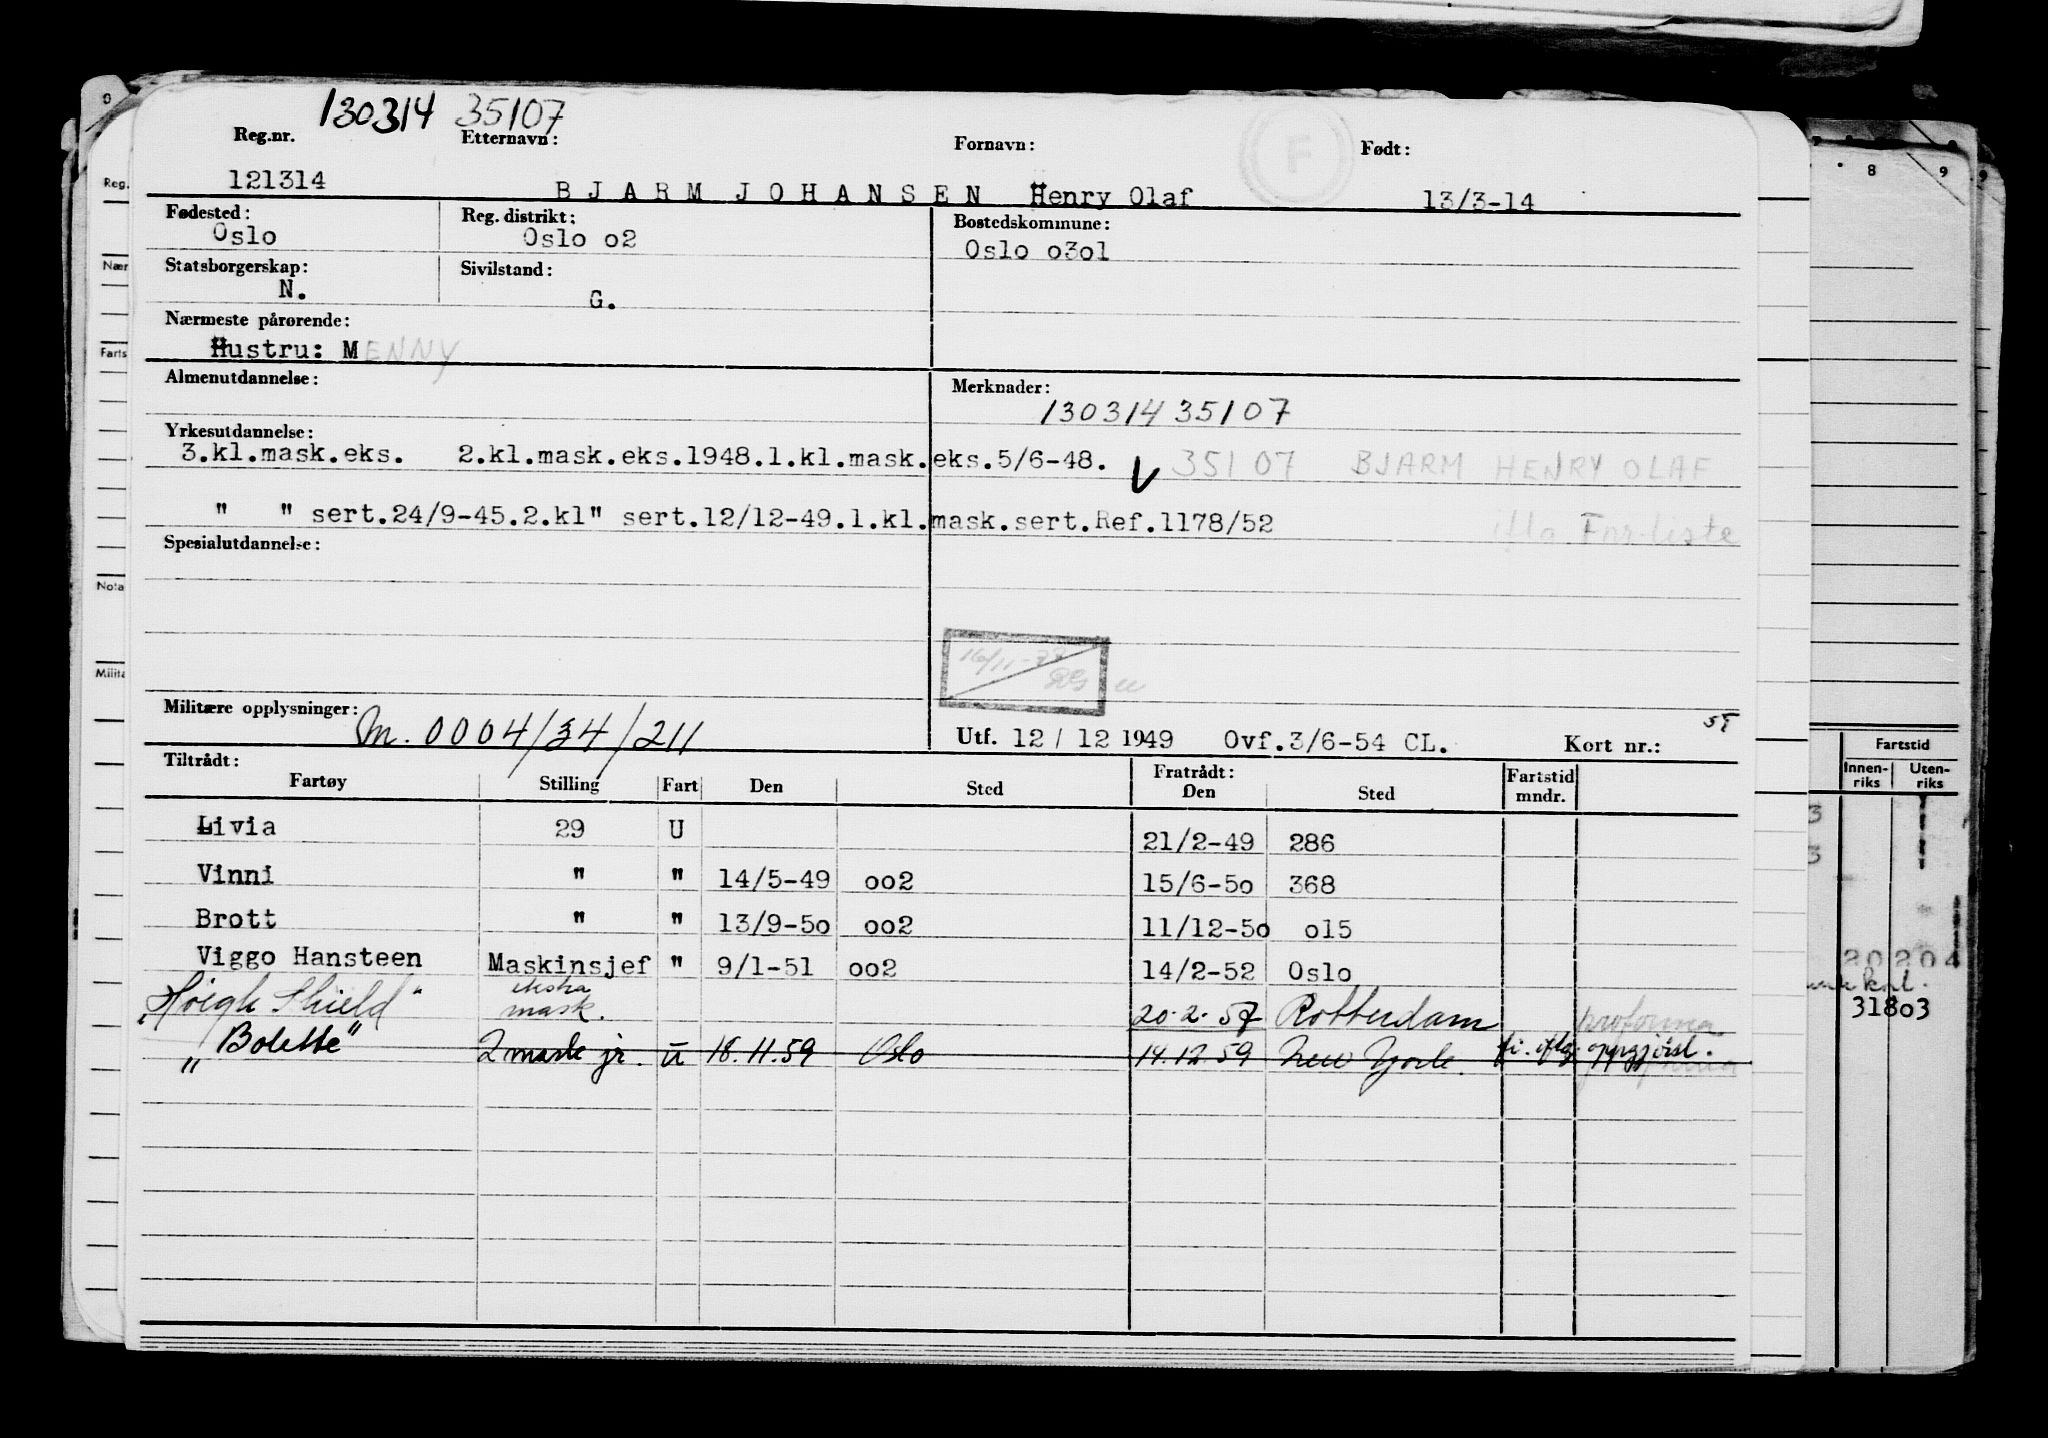 130314 35107
Reg.nr. Etternavn: Fornavn: Født:
121314 BJARM JOHANSEN Henry Olaf 13/3-14
F
Fødested: Reg. distrikt: Bostedskommune:
Oslo Oslo o2 Oslo o3o1
Statsborgerskap: Sivilstand:
N. G.
Nærmeste pårørende:
Hustru: MENNY
Almenutdannelse: Merknader:
130314 35107
Yrkesutdannelse:
3.kl.mask.eks. 2.kl.mask.eks.1948.1.kl.mask.eks.5/6-48. V 35107 BJARM HENRY OLAF
" " sert.24/9-45.2.kl" sert.12/12-49.1.kl.mask.sert.Ref.1178/52
Spesialutdannelse:
Militære opplysninger: M. 0004/34/211
Utf. 12/12 1949 Ovf.3/6-54 CL. Kort nr.:
Tiltrådt: Fratrådt:
Fartøy Stilling Fart Den Sted Den Sted Fartstid mndr.
Livia 29 U 21/2-49 286
Vinni " " 14/5-49 oo2 15/6-5o 368
Brott " " 13/9-5o oo2 11/12-5o o15
Viggo Hansteen Maskinsjef " 9/1-51 oo2 14/2-52 Oslo
"Høigh Shield" ekstra mask. 20.2.57 Rotterdam proforma
"Bolette" 2 mask jr. U 18.11.59 Oslo 14.12.59 New York. oppgjørsl.
Reg.
Nær
Farts
Nota
Milita
8 9
Fartstid
Innen-riks Uten-riks
20204
31803